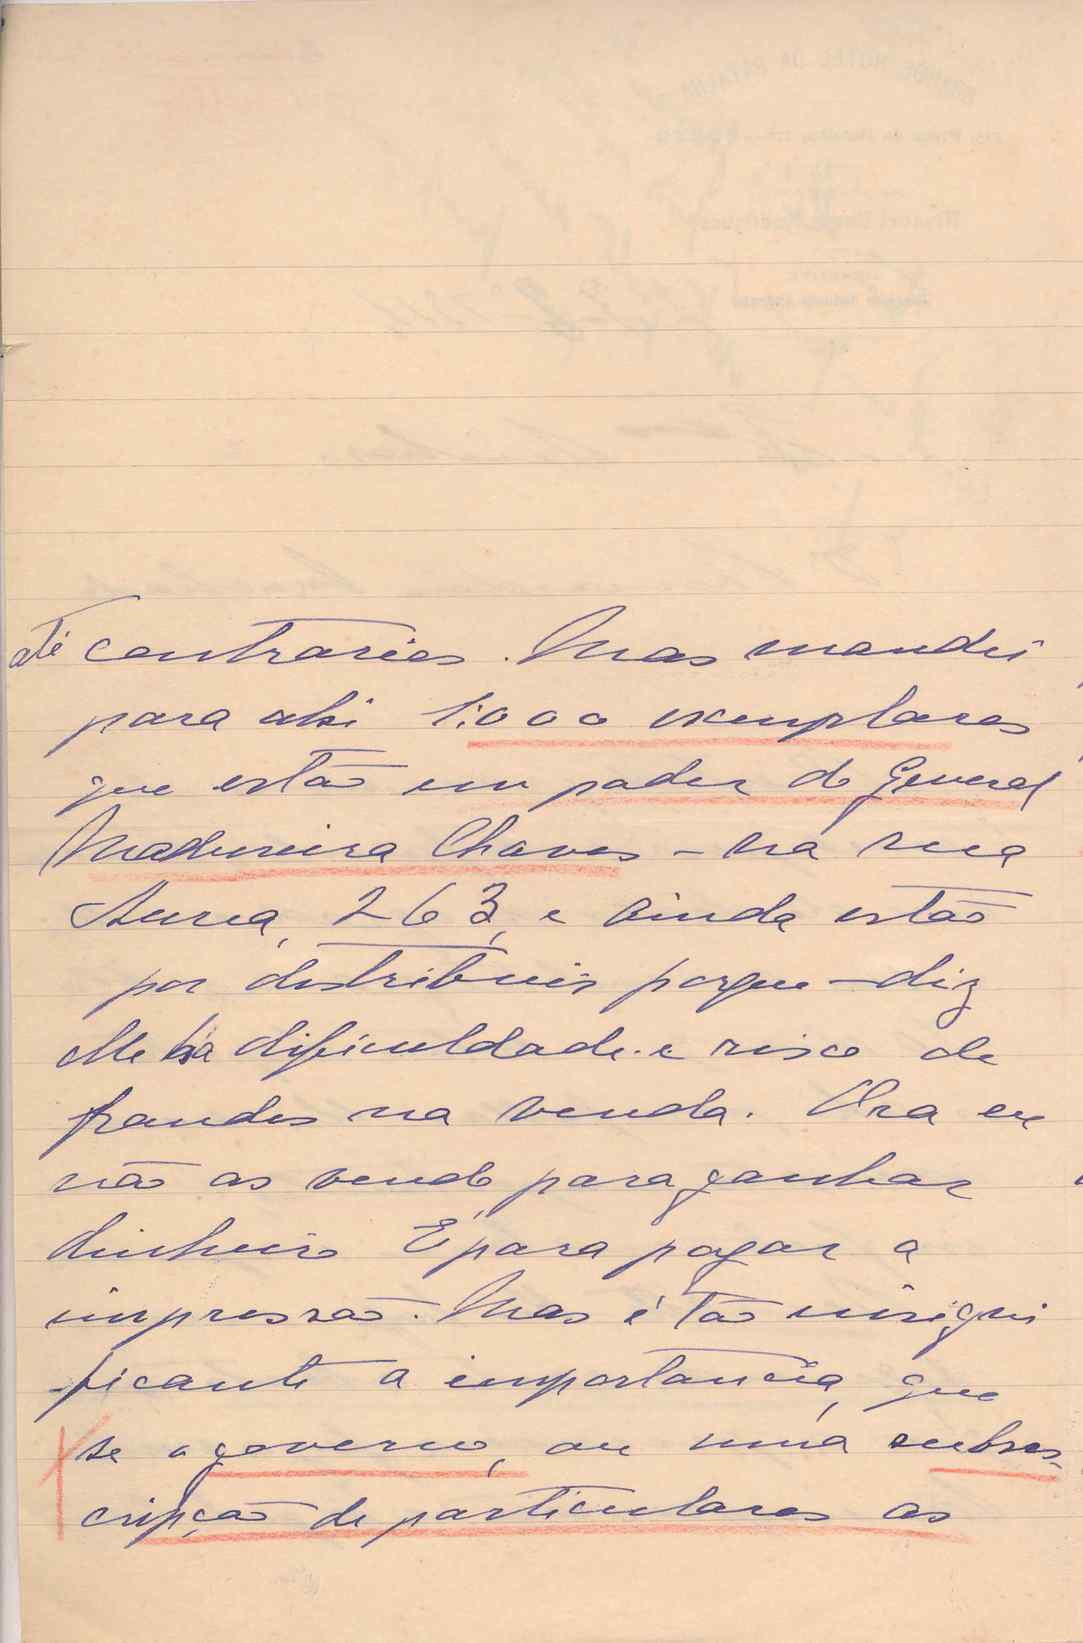 até contrarios. Mas mandei
para ahi 1.000 exemplares
que estão em poder do General
Madureira Chaves - na rua
Aurea, 263, e ainda estão
por distribuir porque - diz
elle ha dificuldade e risco de
fraudes na venda. Ora eu
não as vendo para ganhar
dinheiro É para pagar a
impressão. Mas é tão insigni
-ficante a importancia, que
se o governo, ou uma subs-
cripção de particulares as